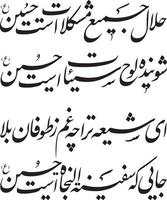 حلال جمیع مشکلات است حسینؑ
شویندهٔ لوح سیئات است حسینؑ
ای شیعه ترا چه غم ز طوفان بلا
جایی که سفینة النجاة است حسینؑ